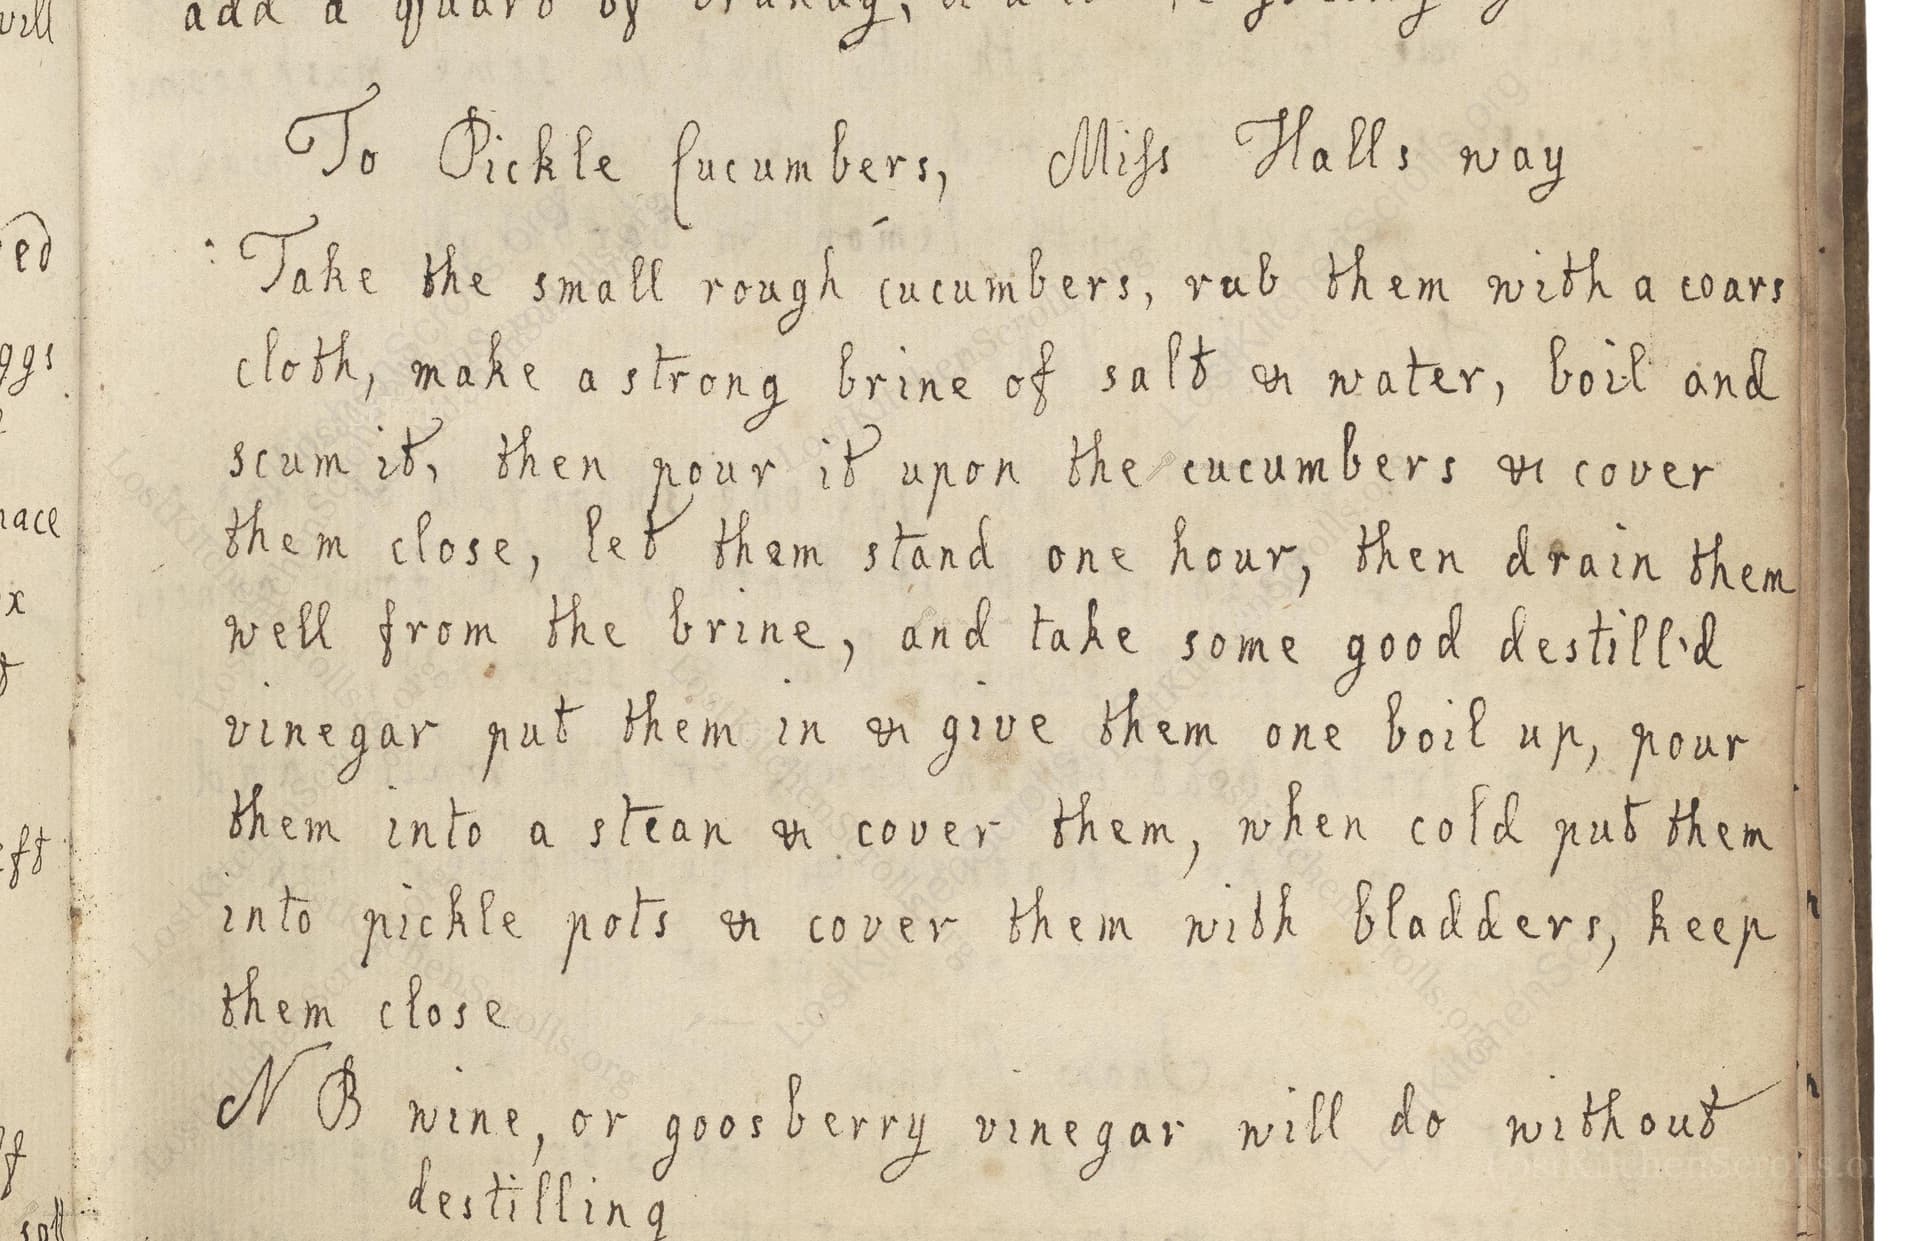 add a quart of brandy,
To Pickle Cucumbers, Miss Halls way
Take the small rough cucumbers, rub them with a coars
cloth, make a strong brine of salt & water, boil and
scum it, then pour it upon the cucumbers & cover
them close, let them stand one hour, then drain them
well from the brine, and take some good destill'd
vinegar put them in & give them one boil up, pour
them into a stean & cover them, when cold put them
into pickle pots & cover them with bladders, keep
them close
N B wine, or goosberry vinegar will do without
destilling